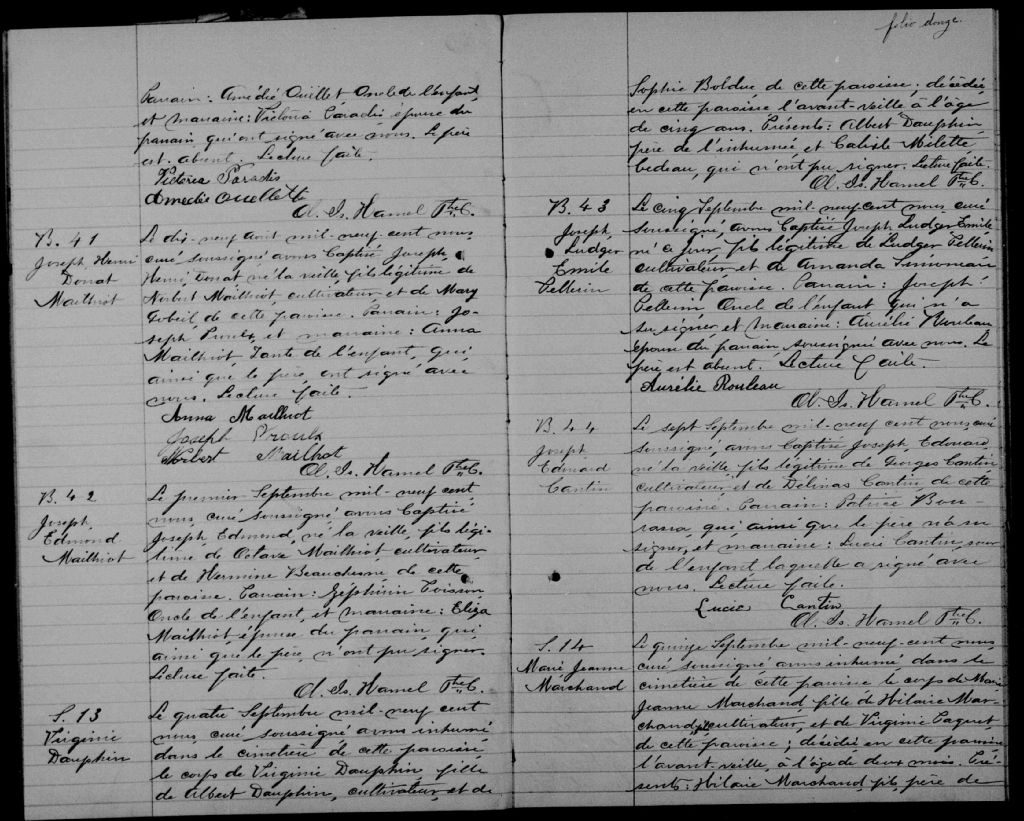 Parrain: Amédié Ouellet Oncle de l'enfant,
et marraine: Victoria Paradis épouse du
parrain qui ont signé avec nous. Le père
est absent. Lecture faite.
Victoria Paradis
Amedie Ouellette
Ol. Is. Hamel Ptre C.
B. 41
Joseph, Henri
Donat
Mailhiot
Le dix-neuf août mil-neuf-cent nous,
curé soussigné avons baptisé Joseph,
Henri, Donat né la veille, fils légitime de
Norbert Mailhiot, cultivateur, et de Mary
Gobeil, de cette paroisse. Parrain: Jo-
seph Proulx, et marraine: Anna
Mailhiot Tante de l'enfant, qui,
ainsi que le père, ont signé avec
nous. Lecture faite.
Anna Mailhiot
Joseph Proulx
Norbert Mailhot
Ol. Is. Hamel Ptre C.
B. 42
Joseph,
Edmond
Mailhiot
Le premier Septembre mil-neuf cent
nous, curé soussigné avons baptisé
Joseph Edmond, né la veille, fils légi-
time de Octave Mailhiot cultivateur,
et de Hermine Beauchesne de cette
paroisse. Parrain: Zéphirin Poisson,
Oncle de l'enfant, et marraine: Eliza
Mailhiot, épouse du parrain, qui,
ainsi que le père, n'ont pu signer.
Lecture faite.
Ol. Is. Hamel Ptre C.
S. 13
Virginie
Dauphin
Le quatre Septembre mil-neuf cent
nous, curé soussigné avons inhumé
dans le cimetière de cette paroisse
le corps de Virginie Dauphin, fille
de Albert Dauphin, cultivateur, et de
folio douze.
Sophie Bolduc de cette paroisse; décédée
en cette paroisse l'avant-veille à l'âge
de cinq ans. Présents: Albert Dauphin,
père de l'inhumée et Calixte Milette
bedeau, qui n'ont pu signer. Lecture faite.
Ol. Is. Hamel Ptre C.
B. 43
Joseph,
Ludger
Emile
Pellerin
Le cinq Septembre mil-neuf cent nous, curé
soussigné, avons baptisé Joseph Ludger Emile
né a jour, fils légitime de Ludger Pellerin
cultivateur et de Amanda Simoneau
de cette paroisse. Parrain: Joseph
Pellerin Oncle de l'enfant qui n'a
su signer, et marraine: Aurélie Rouleau
épouse du parrain, soussignée avec nous. Le
père est absent. Lecture faite.
Aurélie Rouleau
Ol. Is. Hamel Ptre C.
B. 44
Joseph
Edouard
Cantin
Le sept Septembre mil-neuf cent nous curé
soussigné, avons baptisé Joseph, Edouard
né la veille, fils légitime de Georges Cantin
cultivateur, et de Délinas Cantin de cette
paroisse. Parrain: Patrice Bou-
rassa, qui ainsi que le père n'a su
signer, et marraine: Lucie Cantin, sœur
de l'enfant laquelle a signé avec
nous. Lecture faite.
Lucie Cantin
Ol. Is. Hamel Ptre C.
S. 14
Marie Jeanne
Marchand
Le quinze Septembre mil-neuf-cent nous,
curé soussigné avons inhumé, dans le
cimetière de cette paroisse le corps de Marie
Jeanne Marchand fille de Hilaire Mar-
chand, cultivateur, et de Virginie Paquet
de cette paroisse; décédée en cette paroisse
l'avant veille, à l'âge de deux mois. Pré-
sents: Hilaire Marchand, fils, père de